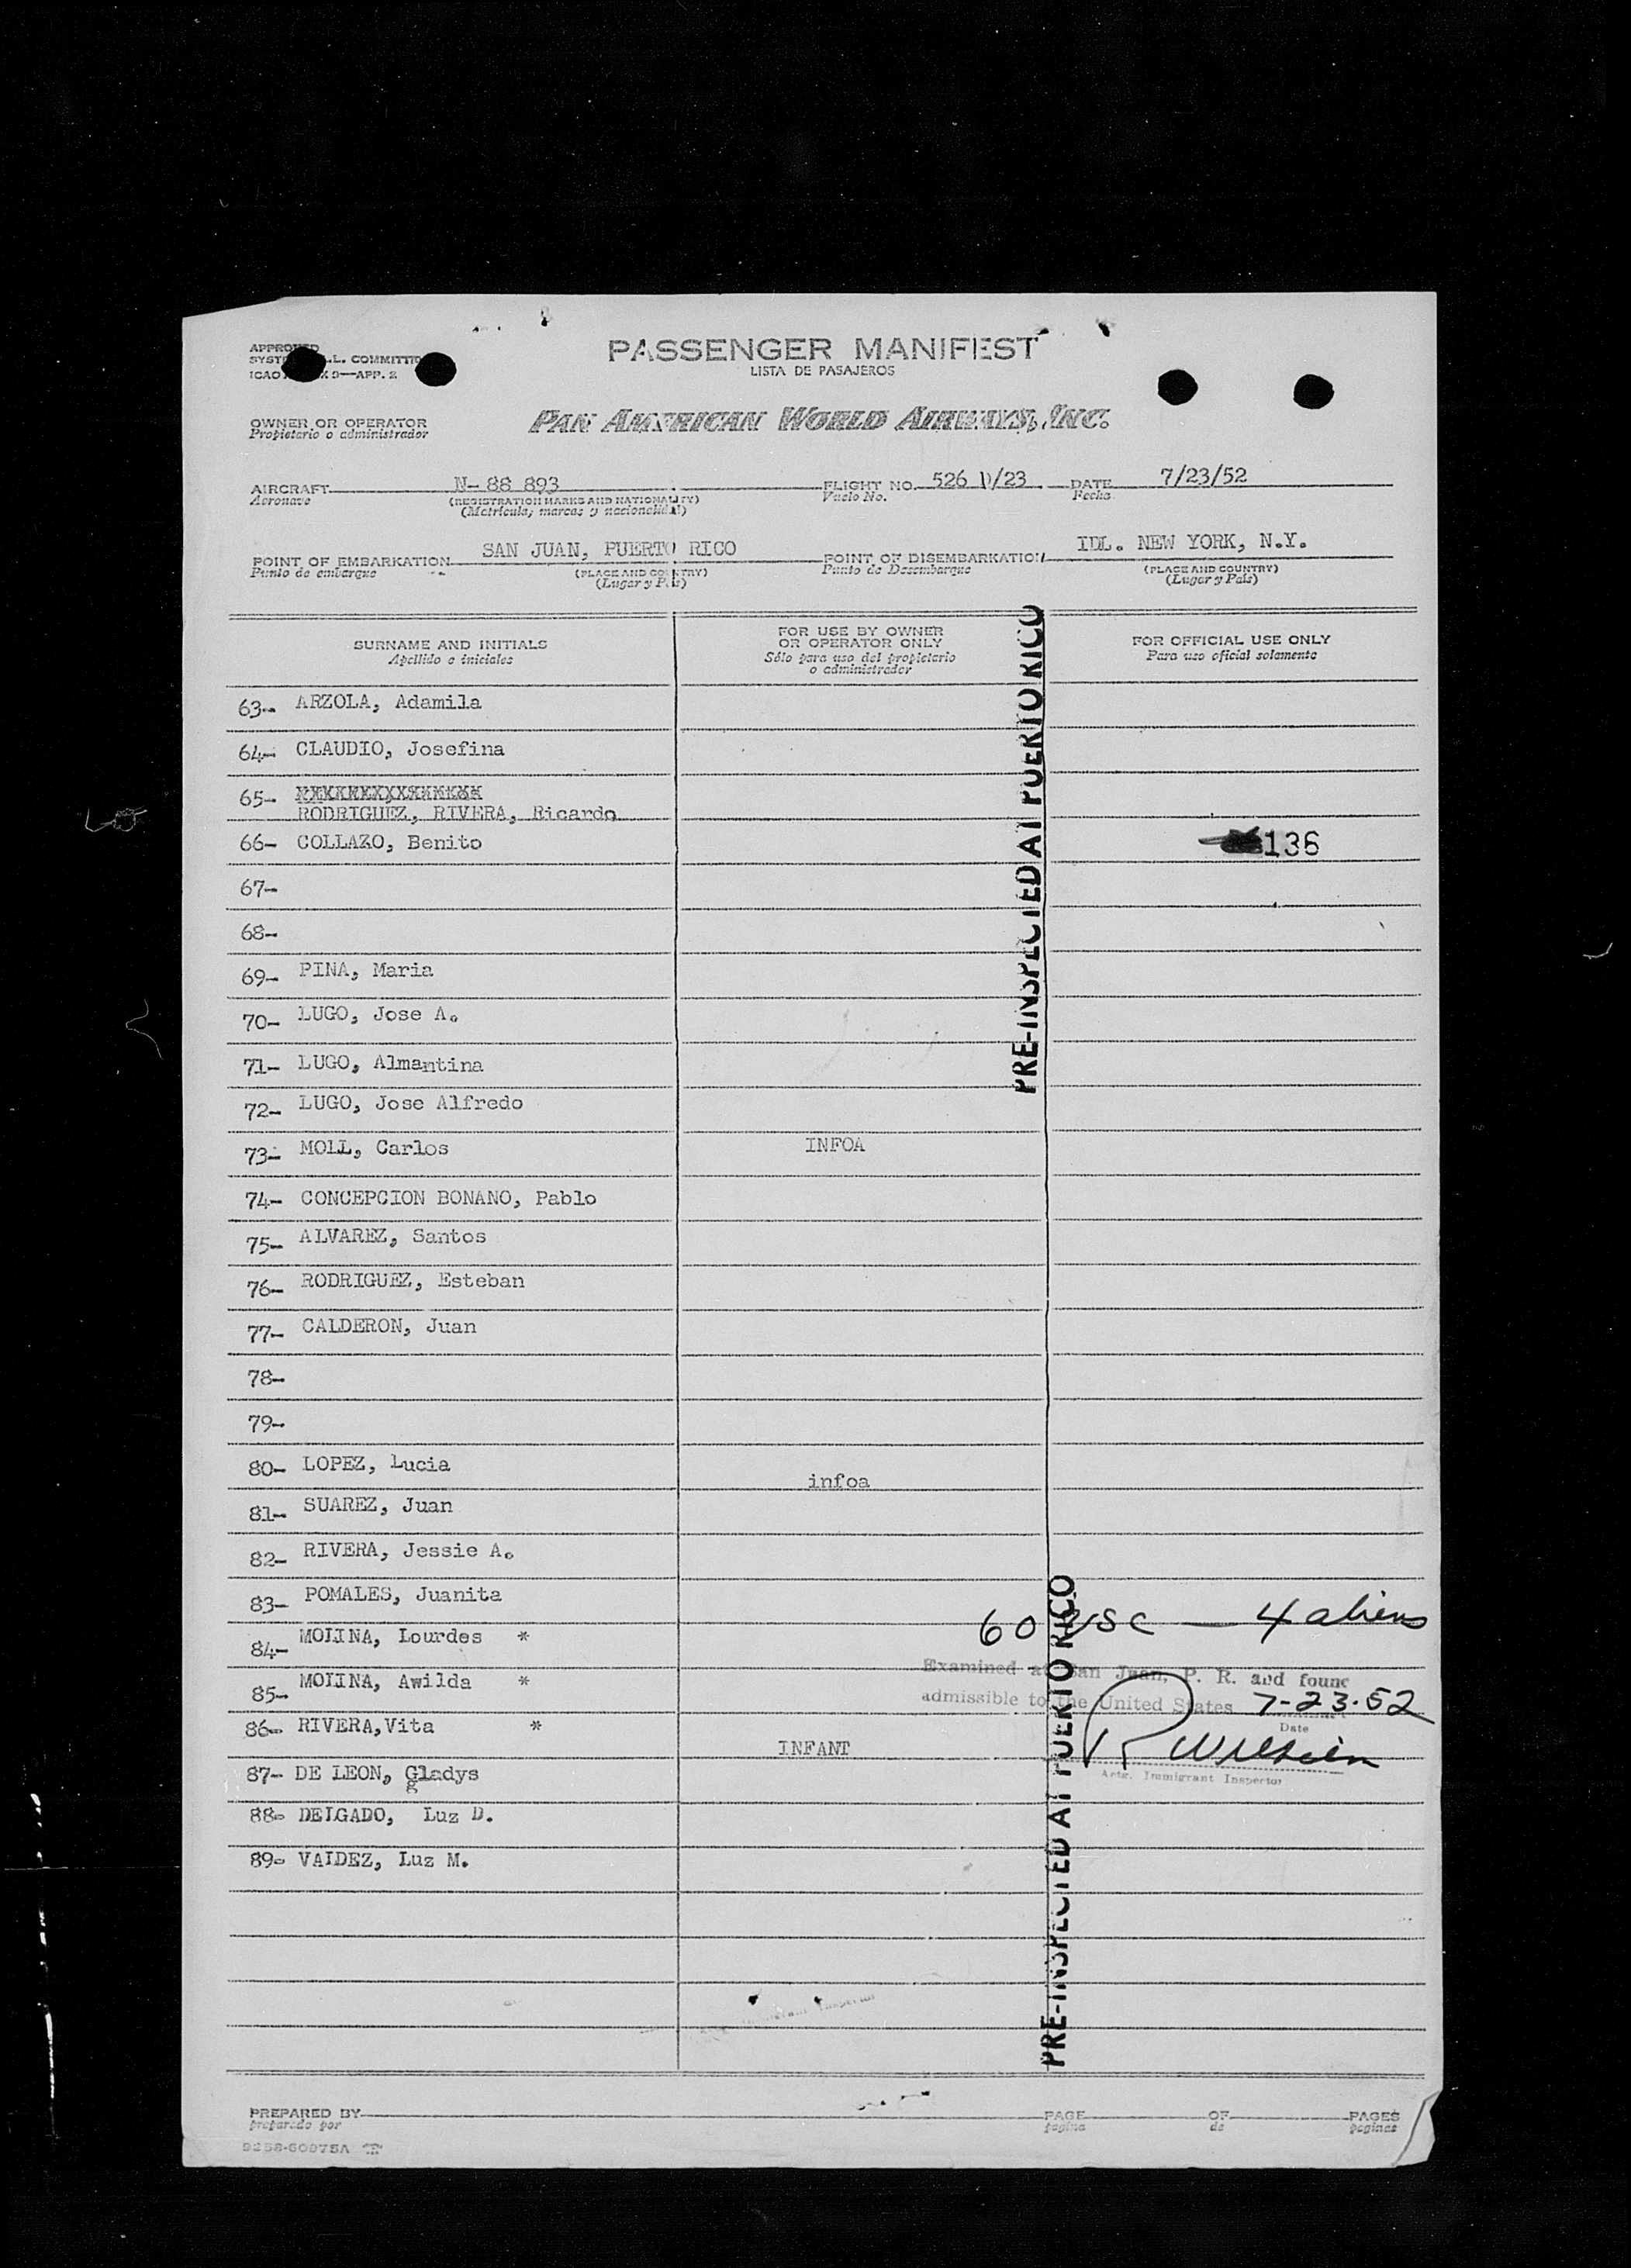 APPROVED
SYST L. COMMITT
ICAO X 9—APP. 2
PASSENGER MANIFEST
LISTA DE PASAJEROS
OWNER OR OPERATOR
Propietario o administrador
PAN AMERICAN WORLD AIRWAYS, INC.
AIRCRAFT N- 88 893 FLIGHT NO. 526 D/23 DATE 7/23/52
Aeronave (REGISTRATION MARKS AND NATIONALITY) Vuelo No. Fecha
(Matrícula, marcas y nacionalidad)
POINT OF EMBARKATION SAN JUAN, PUERTO RICO POINT OF DISEMBARKATION IDL. NEW YORK, N.Y.
Punto de embarque (PLACE AND COUNTRY) Punto de Desembarque (PLACE AND COUNTRY)
(Lugar y País) (Lugar y País)
SURNAME AND INITIALS
Apellido e iniciales
FOR USE BY OWNER
OR OPERATOR ONLY
Sólo para uso del propietario
o administrador
FOR OFFICIAL USE ONLY
Para uso oficial solamente
PRE-INSPECTED AT PUERTO RICO
63- ARZOLA, Adamila
64- CLAUDIO, Josefina
65-
RODRIGUEZ, RIVERA, Ricardo
66- COLLAZO, Benito 136
67-
68-
69- PINA, Maria
70- LUGO, Jose A.
71- LUGO, Almantina
72- LUGO, Jose Alfredo
73- MOLL, Carlos INFOA
74- CONCEPCION BONANO, Pablo
75- ALVAREZ, Santos
76- RODRIGUEZ, Esteban
77- CALDERON, Juan
78-
79-
80- LOPEZ, Lucia infoa
81- SUAREZ, Juan
82- RIVERA, Jessie A.
83- POMALES, Juanita
60 USC — 4 aliens
84- MOLINA, Lourdes *
Examined at San Juan, P. R. and found
85- MOLINA, Awilda *
admissible to the United States 7-23-52
Date
86- RIVERA,Vita * INFANT
Actg. Immigrant Inspector
87- DE LEON, Gladys
88- DELGADO, Luz D.
89- VALDEZ, Luz M.
PRE-INSPECTED AT PUERTO RICO
Immigrant Inspector
PREPARED BY PAGE OF PAGES
preparado por página de páginas
9258-60975A